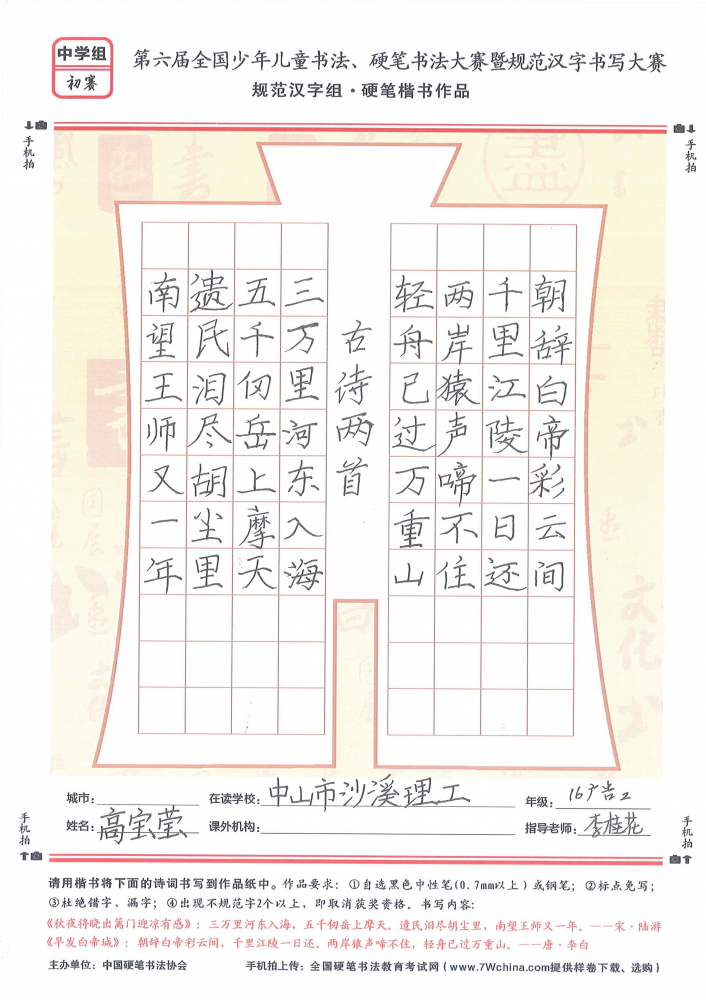 中学组
初赛
第六届全国少年儿童书法、硬笔书法大赛暨规范汉字书写大赛
规范汉字组·硬笔楷书作品
手机拍
手机拍
朝辞白帝彩云间
千里江陵一日还
两岸猿声啼不住
轻舟已过万重山
古诗两首
三万里河东入海
五千仞岳上摩天
遗民泪尽胡尘里
南望王师又一年
城市: 在读学校:中山市沙溪理工 年级:16广告2
姓名:高宝莹 课外机构: 指导老师:李桂花
手机拍
手机拍
请用楷书将下面的诗词书写到作品纸中。作品要求:①自选黑色中性笔(0.7mm以上)或钢笔;②标点免写;
③杜绝错字、漏字;④出现不规范字2个以上,即取消获奖资格。书写内容:
《秋夜将晓出篱门迎凉有感》:三万里河东入海,五千仞岳上摩天。遗民泪尽胡尘里,南望王师又一年。——宋·陆游
《早发白帝城》:朝辞白帝彩云间,千里江陵一日还。两岸猿声啼不住,轻舟已过万重山。——唐·李白
主办单位:中国硬笔书法协会 手机拍上传:全国硬笔书法教育考试网(www.7Wchina.com提供样卷下载、选购)